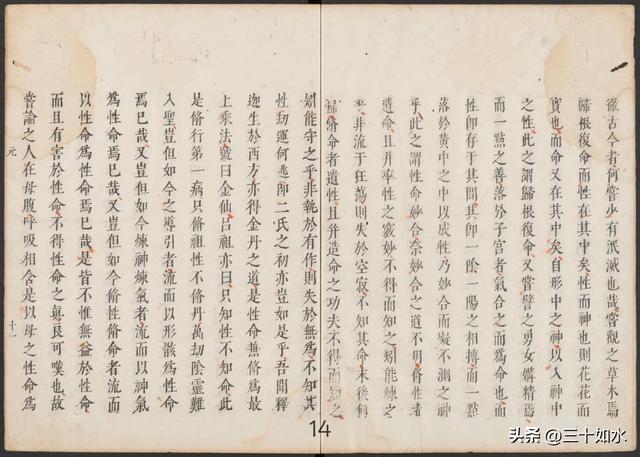 徹古今者何嘗少有泯滅也哉嘗觀之草木焉
歸根復命而性在其中矣性而神也則花花而
實也而命又在其中矣自形中之神以入神中
之性此之謂歸根復命又嘗譬之男女媾精焉
而一點之善落於子宮者氣合之而為命也而
性即存於其間其即一陰一陽之相摶而一點
落於黃中之中以成性乃妙合而凝不測之神
乎此之謂性命妙合奈妙合之道不明脩性者
遺命且并率性之竅妙不得而知之矧能煉之
乎非流于狂蕩則失於空寂不知其命末後何
歸脩命者遺性且并造命之功夫不得而知之
矧能守之乎非執於有作則失於無為不知其
性劫運何逃即二氏之初亦豈如是乎吾聞釋
迦生於西方亦得金丹之道是性命兼脩為最
上乘法號曰金仙呂祖亦曰只知性不知命此
是脩行第一病只脩祖性不脩丹萬劫陰靈難
入聖豈但如今之導引者流而以形骸為性命
焉已哉又豈但如今煉神煉氣者流而以神氣
為性命焉已哉又豈但如今脩性脩命者流而
以性命為性命焉已哉是皆不惟無益於性命
而且有害於性命不得性命之真良可嘆也故
嘗論之人在母腹呼吸相含是以母之性命為
元 十一
14
头条 @三十如水